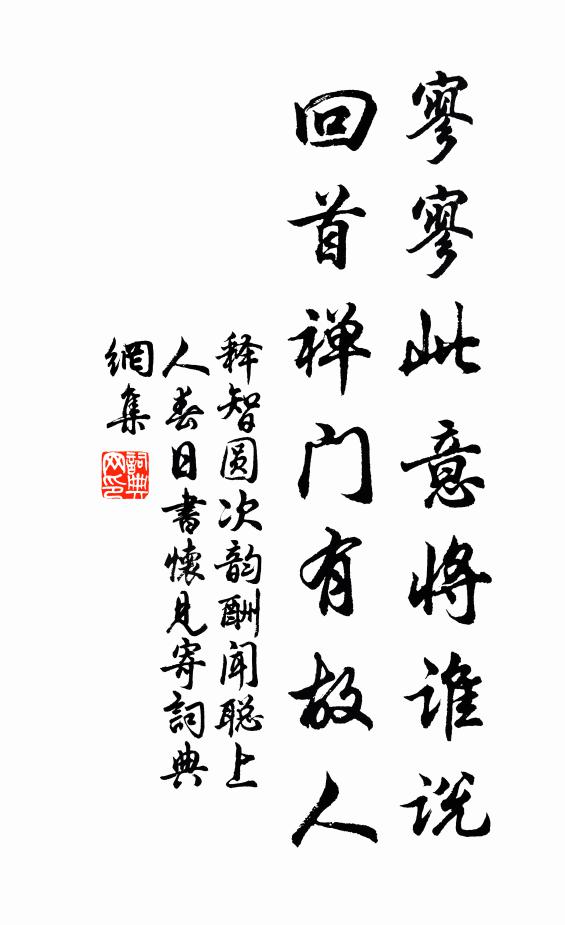 寥寥此意将谁说
回首禅门有故人
释智圆次韵酬闻聪上
人春日书懷见寄词典
網集
詞典
网印